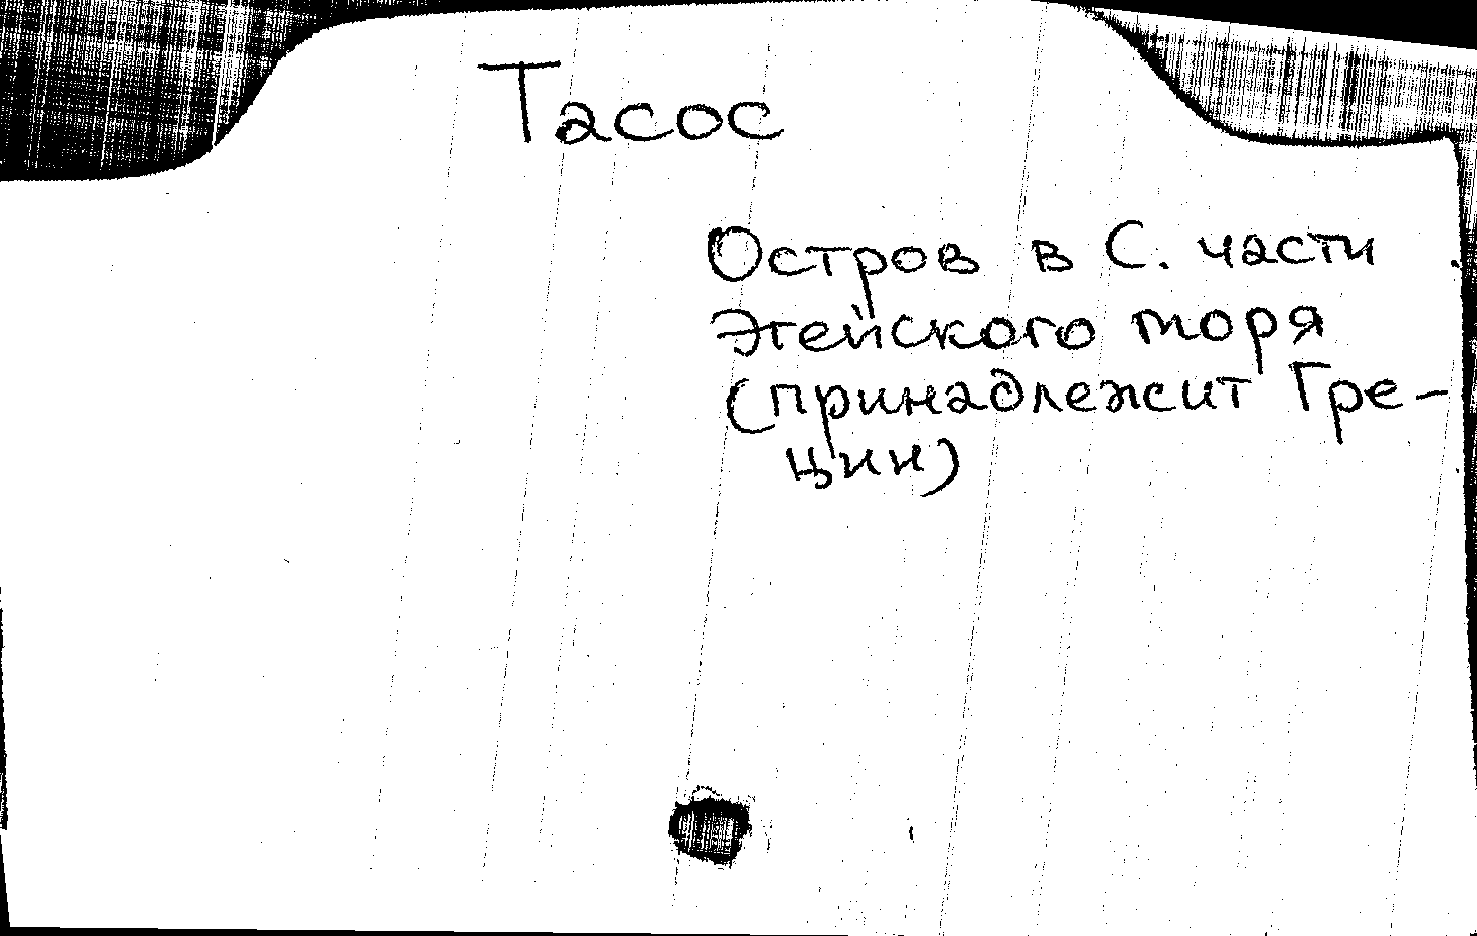 Тасос
Остров в С. части
Эгейского моря
(принадлежит Гре-
ции)